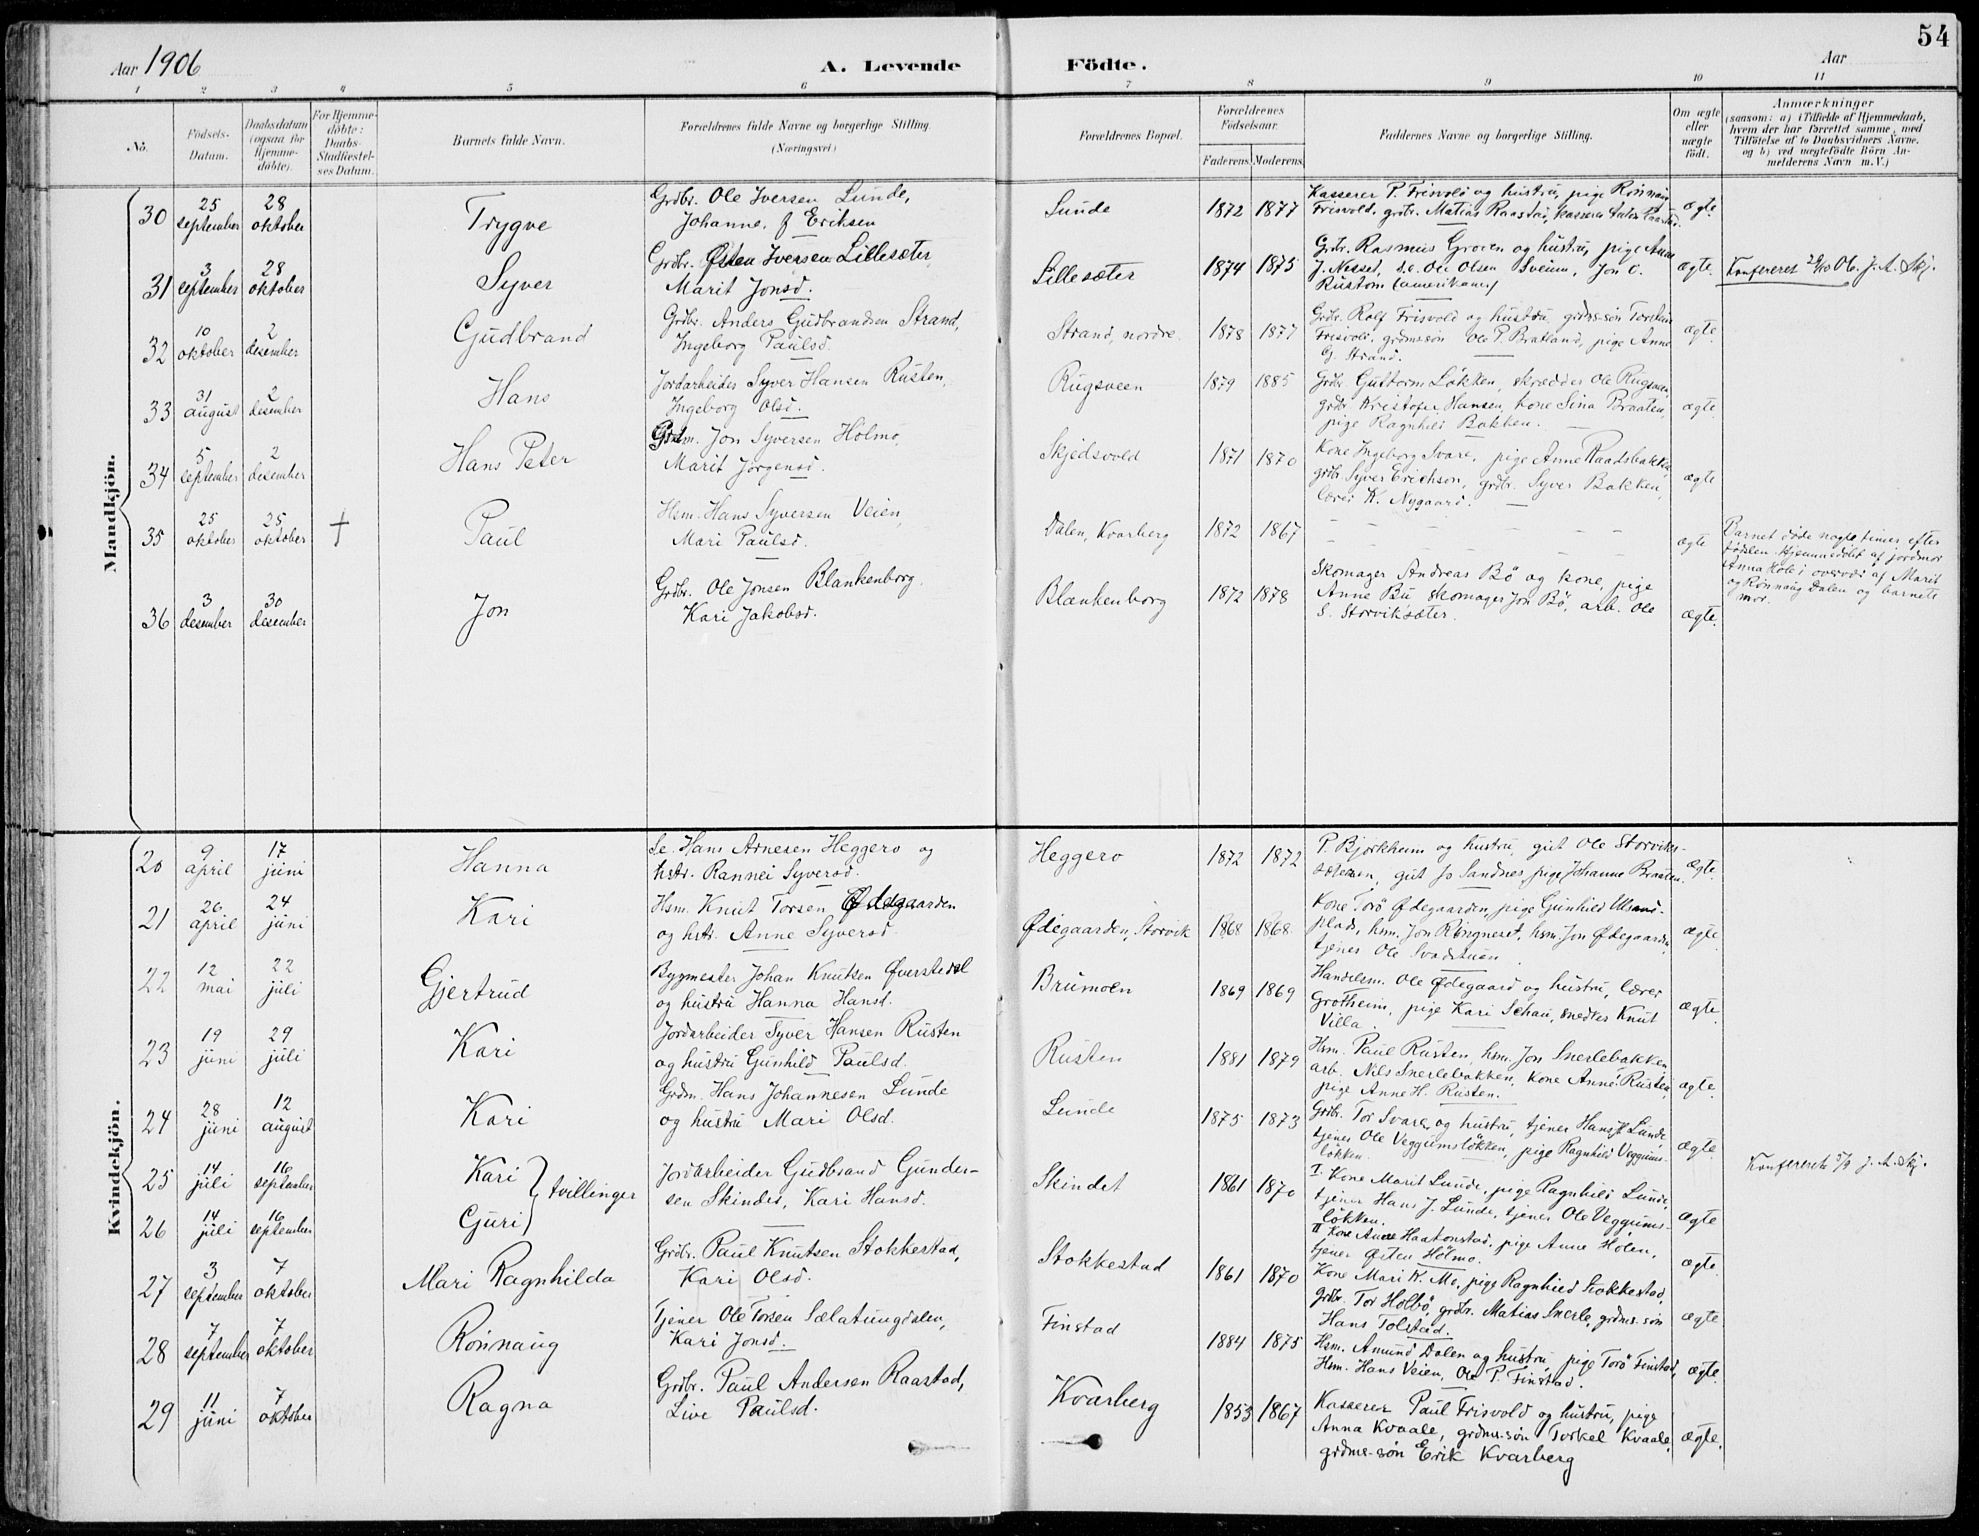 54
Aar 1906
A. Levende Födte.
Aar
1 2 3 4 5 6 7 8 9 10 11
No.
Födsels-Datum.
Daabsdatum (ogsaa for Hjemme-döbte).
For Hjemme-döbte: Daabs-Stadfæstel-ses Datum.
Barnets fulde Navn.
Forældrenes fulde Navne og borgerlige Stilling.
(Næringsvei)
Forældrenes Bopæl.
Forældrenes Födselsaar.
Faderens. Moderens.
Faddernes Navne og borgerlige Stilling.
Om ægte eller uægte födt.
Anmærkninger
(saasom: a) i Tilfælde af Hjemmedaab,
hvem der har forrettet samme, med
Tilföielse af to Daabsvidners Navne,
og b) ved uægtefödte Börn An-
melderens Navn m. V.)
Mandkjön.
30 25 september 28 oktober Trygve
Grdbr. Ole Iversen Lunde,
Johanne, f Eriksen
Lunde 1872 1877
Kasserer P. Frisvold og hustru, pige Rønnau
Frisvold, grdbr. Matias Raastad, kasserer Anton Raastad.
ægte.
31 3 september 28 oktober Syver
Grdbr. Østen Iversen Lillesæter,
Marit Jonsd.
Lillesæter 1874 1875
Grdbr. Rasmus Groven og hustru, pige Anne
J. Nesset, s.e. Ole Olsen Sveum, Jon O.
Rustom (amerikaner)
ægte. Konfereret 29/10 06. J. A. Skj.
32 10 oktober 2 desember Gudbrand
Grdbr. Anders Gudbrandsen Strand,
Ingeborg Paulsd.
Strand, nordre. 1878 1877
Grdbr. Rolf Frisvold og hustru, grdms-søn Torstein
Frisvold, grdmssøn Ole P. Bratland, pige Anne
G. Strand.
ægte.
33 31 august 2 desember Hans
Jordarbeider Syver Hansen Rusten,
Ingeborg Olsd.
Rugsveen 1879 1885
Grdbr. Guttorm Løkken, skrædder Ole Rugsveen,
grdbr. Kristofer Hansen, kone Sina Braaten,
pige Ragnhild Bakken.
ægte.
34 5 september 2 desember Hans Peter
Grdm. Jon Syversen Holmo,
Marit Jørgensd.
Skjedsvold 1871 1870
Kone Ingeborg Svare, pige Anne Raadsbakken
grdbr. Syver Erichsen, grdbr. Syver Bakken,
lærer K. Nygaard.
ægte
35 25 oktober 25 oktober † Paul
Hsm. Hans Syversen Veien,
Mari Paulsd.
Dalen, Kvarberg 1872 1867
ægte
Barnet døde nogle timer efter
fødslen. Hjemmedøbt af jordmor
Anna Hole i overvær af Marit
og Rønnaug Dalen og barnets
mor.
36 3 desember 30 desember Jon
Grdbr. Ole Jonsen Blankenborg.
Kari Jakobsd.
Blankenborg 1872 1878
Skomager Andreas Bø og kone, pige
Anne Bu skomager Jon Bø, arb. Ole
S. Storviksæter.
ægte.
Kvindekjön.
20 9 april 17 juni Hanna
S.e. Hans Arnesen Heggero og
hstr. Rannei Syversd.
Heggero 1872 1872
P. Bjørkheim og hustru, gut Ole Storviks-
sæteren, gut Jo Sandnes pige Johanne Braaten.
ægte.
21 26 april 24 juni Kari
Hsm. Knut Torsen Ødegaarden
og hstr. Anne Syversd.
Ødegaarden, Storvik 1868 1868
Kone Torø Ødegaarden, pige Gunhild Ulsand-
plads, hsm. Jon Ringneset, hsm. Jon Ødegaarden,
tjener Ole Svadstuen.
ægte
22 12 mai 22 juli Gjertrud
Bygmester Johan Knutsen Øverstedal
og hustru Hanna Hansd.
Brumoen 1869 1869
Handelsm. Ole Ødegaard og hustru, lærer
Grotheim, pige Kari Schau, snedker Knut
Villa.
ægte.
23 19 juni 29 juli Kari
Jordarbeider Syver Hansen Rusten
og hustru Gunhild Paulsd.
Rusten 1881 1879
Hsm. Paul Rusten, hsm. Jon Snerlebakken
arb. Nils Snerlebakken, kone Anne Rusten,
pige Anne H. Rusten.
ægte.
24 28 juni 12 august Kari
Grdm. Hans Johannesen Lunde
og hustru Mari Olsd.
Lunde 1875 1873
Grdbr. Tor Svare, og hustru, tjener Hans J. Lunde,
tjener Ole Veggumsløkken, pige Ragnhild Veggums-
løkken.
ægte.
25 14 juli 16 september Kari } tvillinger
26 14 juli 16 september Guri
Jordarbeider Gudbrand Gunder-
sen Skindet, Kari Hansd.
Skindet 1861 1870
I. Kone Marit Lunde, pige Ragnhild Lunde,
tjener Hans J. Lunde, tjener Ole Veggums-
løkken.
II Kone Anne Haakonstad, pige Anne Holen,
tjener Østen Holmo.
ægte
ægte.
Konfereret 5/9 J. A. Skj.
27 3 september 7 oktober Mari Ragnhilda
Grdbr. Paul Knutsen Stokkestad,
Kari Olsd.
Stokkestad 1861 1870
Kone Mari K. Mo, pige Ragnhild Stokkestad,
grdbr. Tor Holbø, grdbr. Matias Snerle, grdms-søn
Hans Tolstad.
ægte.
28 7 september 7 oktober Rønnaug
Tjener Ole Torsen Sælatungdalen,
Kari Jonsd.
Finstad 1884 1875
Hsm. Amund Dalen og hustru, pige Torø Finstad,
Hsm. Hans Veien, Ole P. Finstad.
ægte.
29 11 juni 7 oktober Ragna
Grdbr. Paul Andersen Raastad,
Live Paulsd.
Kvarberg 1853 1867
Kasserer Paul Frisvold og hustru, pige
Anna Kvaale, grdms-søn Torkel Kvaale,
grdms-søn Erik Kvarberg
ægte.